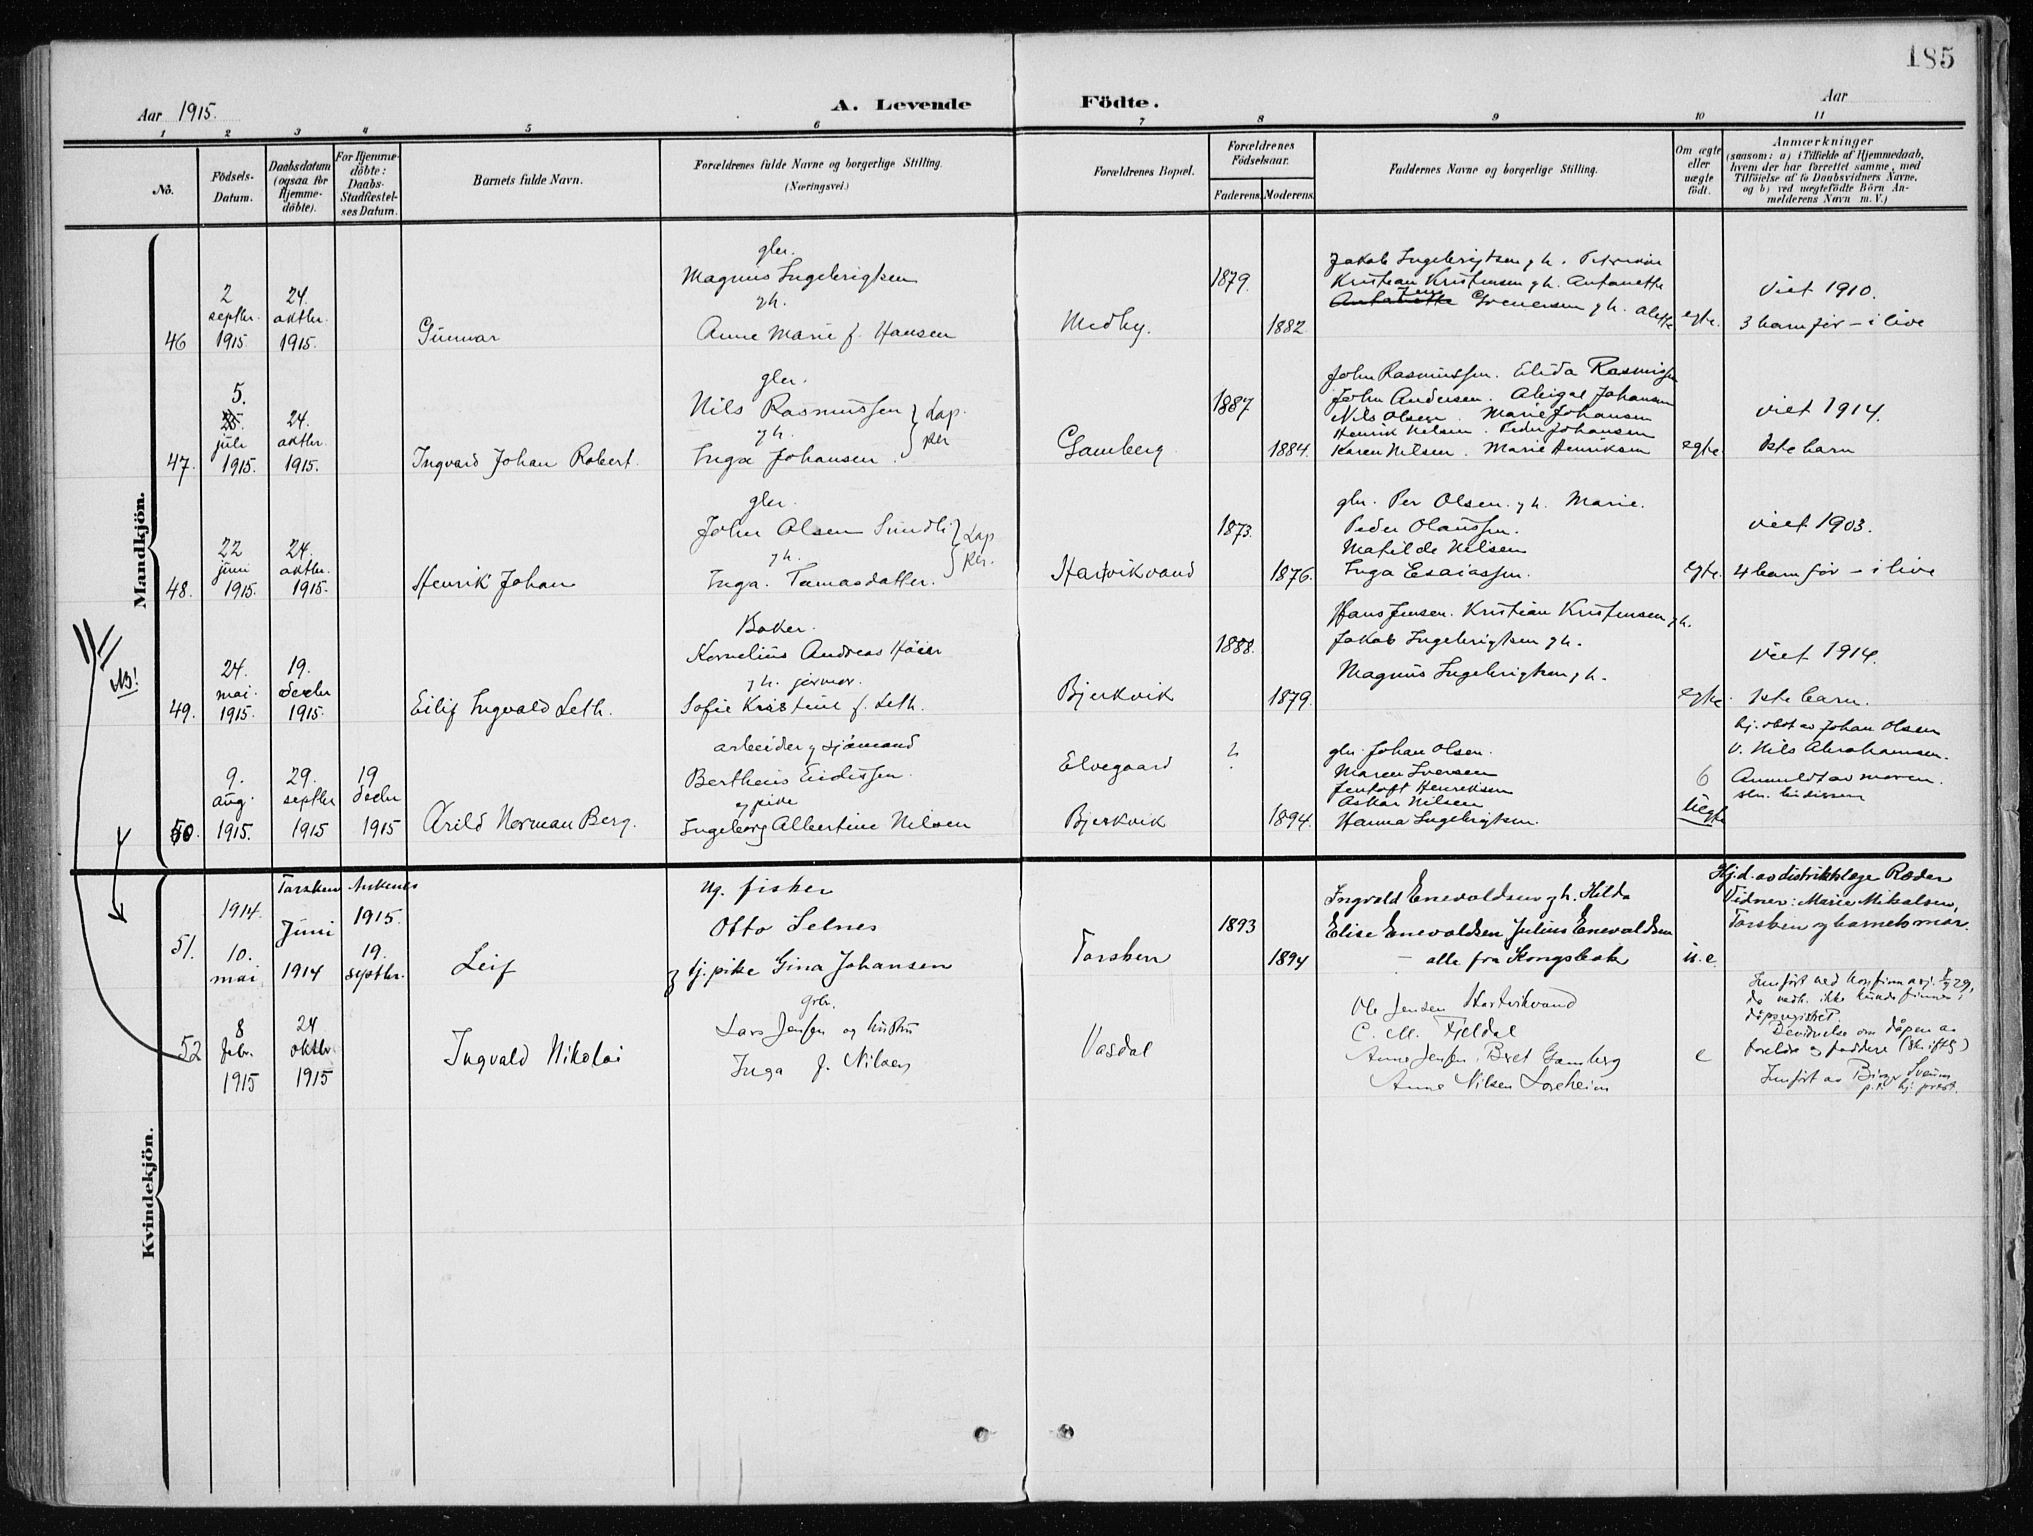 185
Aar 1915.
A. Levende Födte.
Aar
1 2 3 4 5 6 7 8 9 10 11
No.
Födsels-
Datum.
Daabsdatum
(ogsaa for
Hjemme-
döbte).
For Hjemme-
döbte:
Daabs-
Stadfæstel-
ses Datum.
Barnets fulde Navn.
Forældrenes fulde Navne og borgerlige Stilling.
(Næringsvei.)
Forældrenes Bopæl.
Forældrenes
Födselsaar.
Faderens. Moderens.
Faddernes Navne og borgerlige Stilling.
Om ægte
eller
uægte
födt.
Anmærkninger
(saasom: a) i Tilfælde af Hjemmedaab,
hvem der har forrettet samme, med
Tilföielse af to Daabsvidners Navne,
og b) ved uægtefödte Börn An-
melderens Navn m. V.)
Mandkjön.
46
2
septbr.
1915
24.
oktbr.
1915.
Gunnar
gbr.
Magnus Ingebrigtsen
gh.
Anne Marie f. Hansen
Medby.
1879.
1882
Jakob Ingebrigtsen gh. Petrikke
Kristian Kristensen gh. Antonette
Jens
Antonette Svendsen gh. Alette
egte.
Viet 1910.
3 barn før – i live
47.
5.
25
juli
1915.
24.
oktbr.
1915.
Ingvard Johan Robert.
gbr.
Nils Rasmussen
gh.
Inga Johansen.
Lap-
per
Gamberg
1887
1884.
John Rasmussen. Elida Rasmussen
John Andersen. Abigal Johansen
Nils Olsen. Marie Johansen
Henrik Nilsen. Peder Johansen
Karen Nilsen. Marie Henriksen
egte
viet 1914.
1ste barn
48.
22
juni
1915.
24.
oktbr.
1915.
Henrik Johan
gbr.
John Olsen Sundli
gh.
Inga. Tomasdatter.
Lap
per.
Hartvikvand
1873.
1876.
gbr. Per Olsen. gh. Marie.
Peder Olaussen.
Matilde Nilsen
Inga Esaiassen.
egte.
viet 1903.
4 barn før – i live
49.
24.
mai.
1915.
19.
decbr
1915.
Eilif Ingvald Leth.
Baker.
Kornelius Andreas Höier
gh. jormor.
Sofie Kristine f. Leth.
Bjerkvik
1888.
1879.
Hans Jensen. Kristian Kristensen gh.
Jakob Ingebrigtsen gh.
Magnus Ingebrigtsen gh.
egte.
Viet 1914.
1ste barn.
NB!
50.
9.
aug.
1915.
29.
septbr
1915
19
decbr
1915
Arild Norman Berg.
arbeider og sjömand
Bertheus Eidissen.
og pike
Ingeborg Albertine Nilsen
Elvegaard
Bjerkvik
?
1894.
gbr. Johan Olsen.
Maren Iversen
Jentoft Henriksen
Oskar Nilsen
Hanna Ingebrigtsen.
6
uegte
hj. döbt av Johan Olsen
V. Nils Abrahamsen.
Anmeldt av moren.
Kvindekjön.
51.
1914.
10.
mai
Torsken
Juni
1914
Ankenes
1915.
19.
septbr.
Leif
ug. fisker
Otto Selnes
og hj. pike Gina Johansen
Torsken
1893
1894
Ingvald Enevoldsen gh. Hilda
Elise Enevoldsen Julius Enevoldsen
– alle fra Kongsbak
u.e.
Hj.d. av distriktslæge Ræder
Vidner: Marie Mikalsen,
Torsken og barnets mor.
52
8
febr.
1915
24
oktbr
1915
Ingvald Nikolai
grbr.
Lars Jensen og hustru
Inga f. Nilsen
Vasdal
Ole Jensen Hartvikvand
C. M. Fjeldal
Anne Jensen, Beret Gamberg
Anne Nilsen Loreheim
e
Innført ved konfirmasj. 29,
da vedk. ikke kunde finnes i
dåpsregistret.
Bevidnelse om dåpen av
foreldre og faddere (skriftlig)
Innført av Birger
p.t. hj. prest.